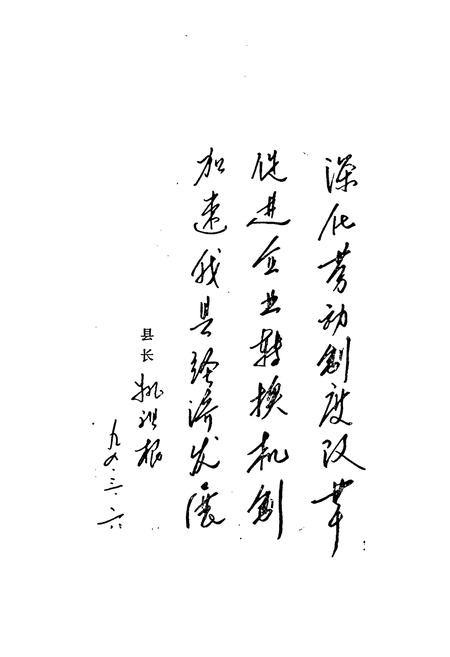 深化劳动制度改革
促进企业转换机制
加速我县经济发展
县长
九四·三·六